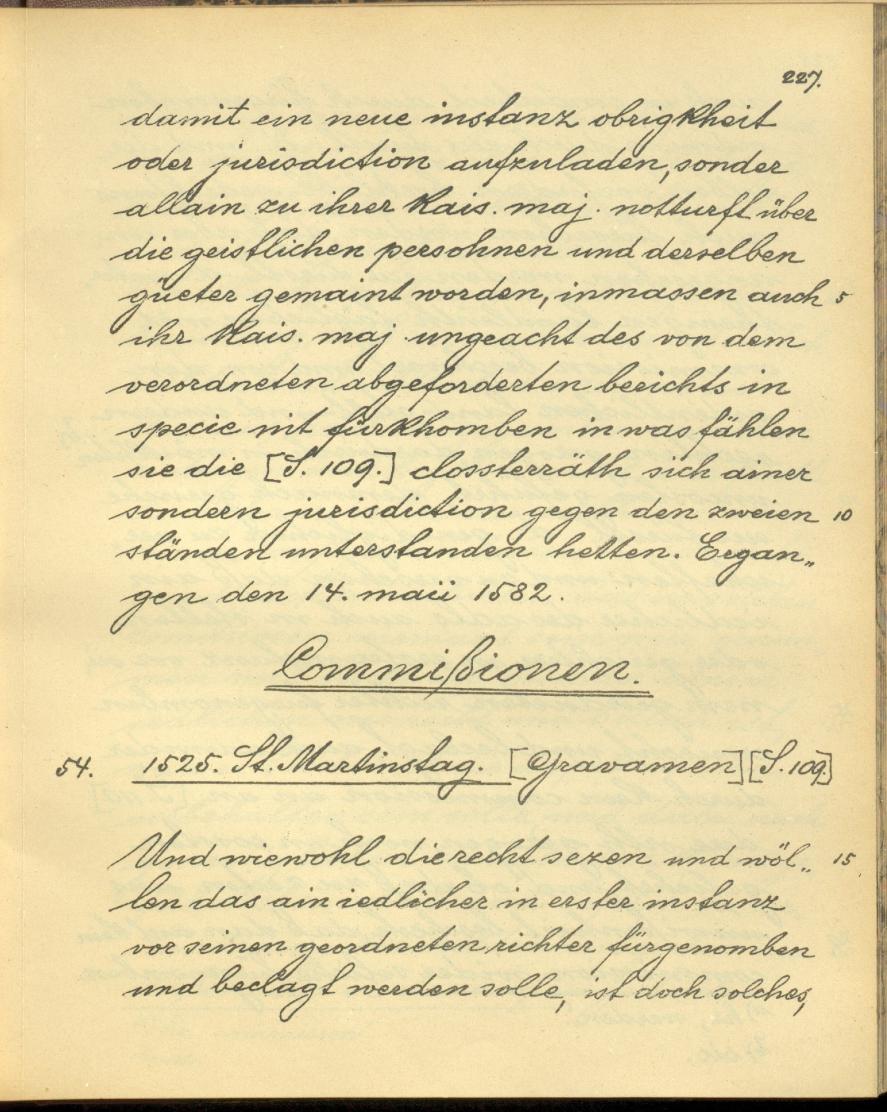 227.
damit ein neue instanz obrigkheit
oder jurisdiction aufzuladen, sonder
allain zu ihrer Kais. maj. notturft über
die geistlichen persohnen und derselben
güeter gemaint worden, inmassen auch 5
ihr Kais. maj. ungeacht des von dem
verordneten abgeforderten berichts in
specie nit fürkhomben in was fählen
sie die [S. 109.] clossterräth sich ainer
sondern jurisdiction gegen den zweien 10
ständen unterstanden hetten. Ergan„
gen den 14. maii 1582.
Commißionen.
54. 1525. St. Martinstag. [Gravamen] [S. 109.]
Und wiewohl die recht sezen und wöl„ 15
len das ain iedlicher in erster instanz
vor seinen geordneten richter fürgenomben
und beclagt werden solle, ist doch solches,